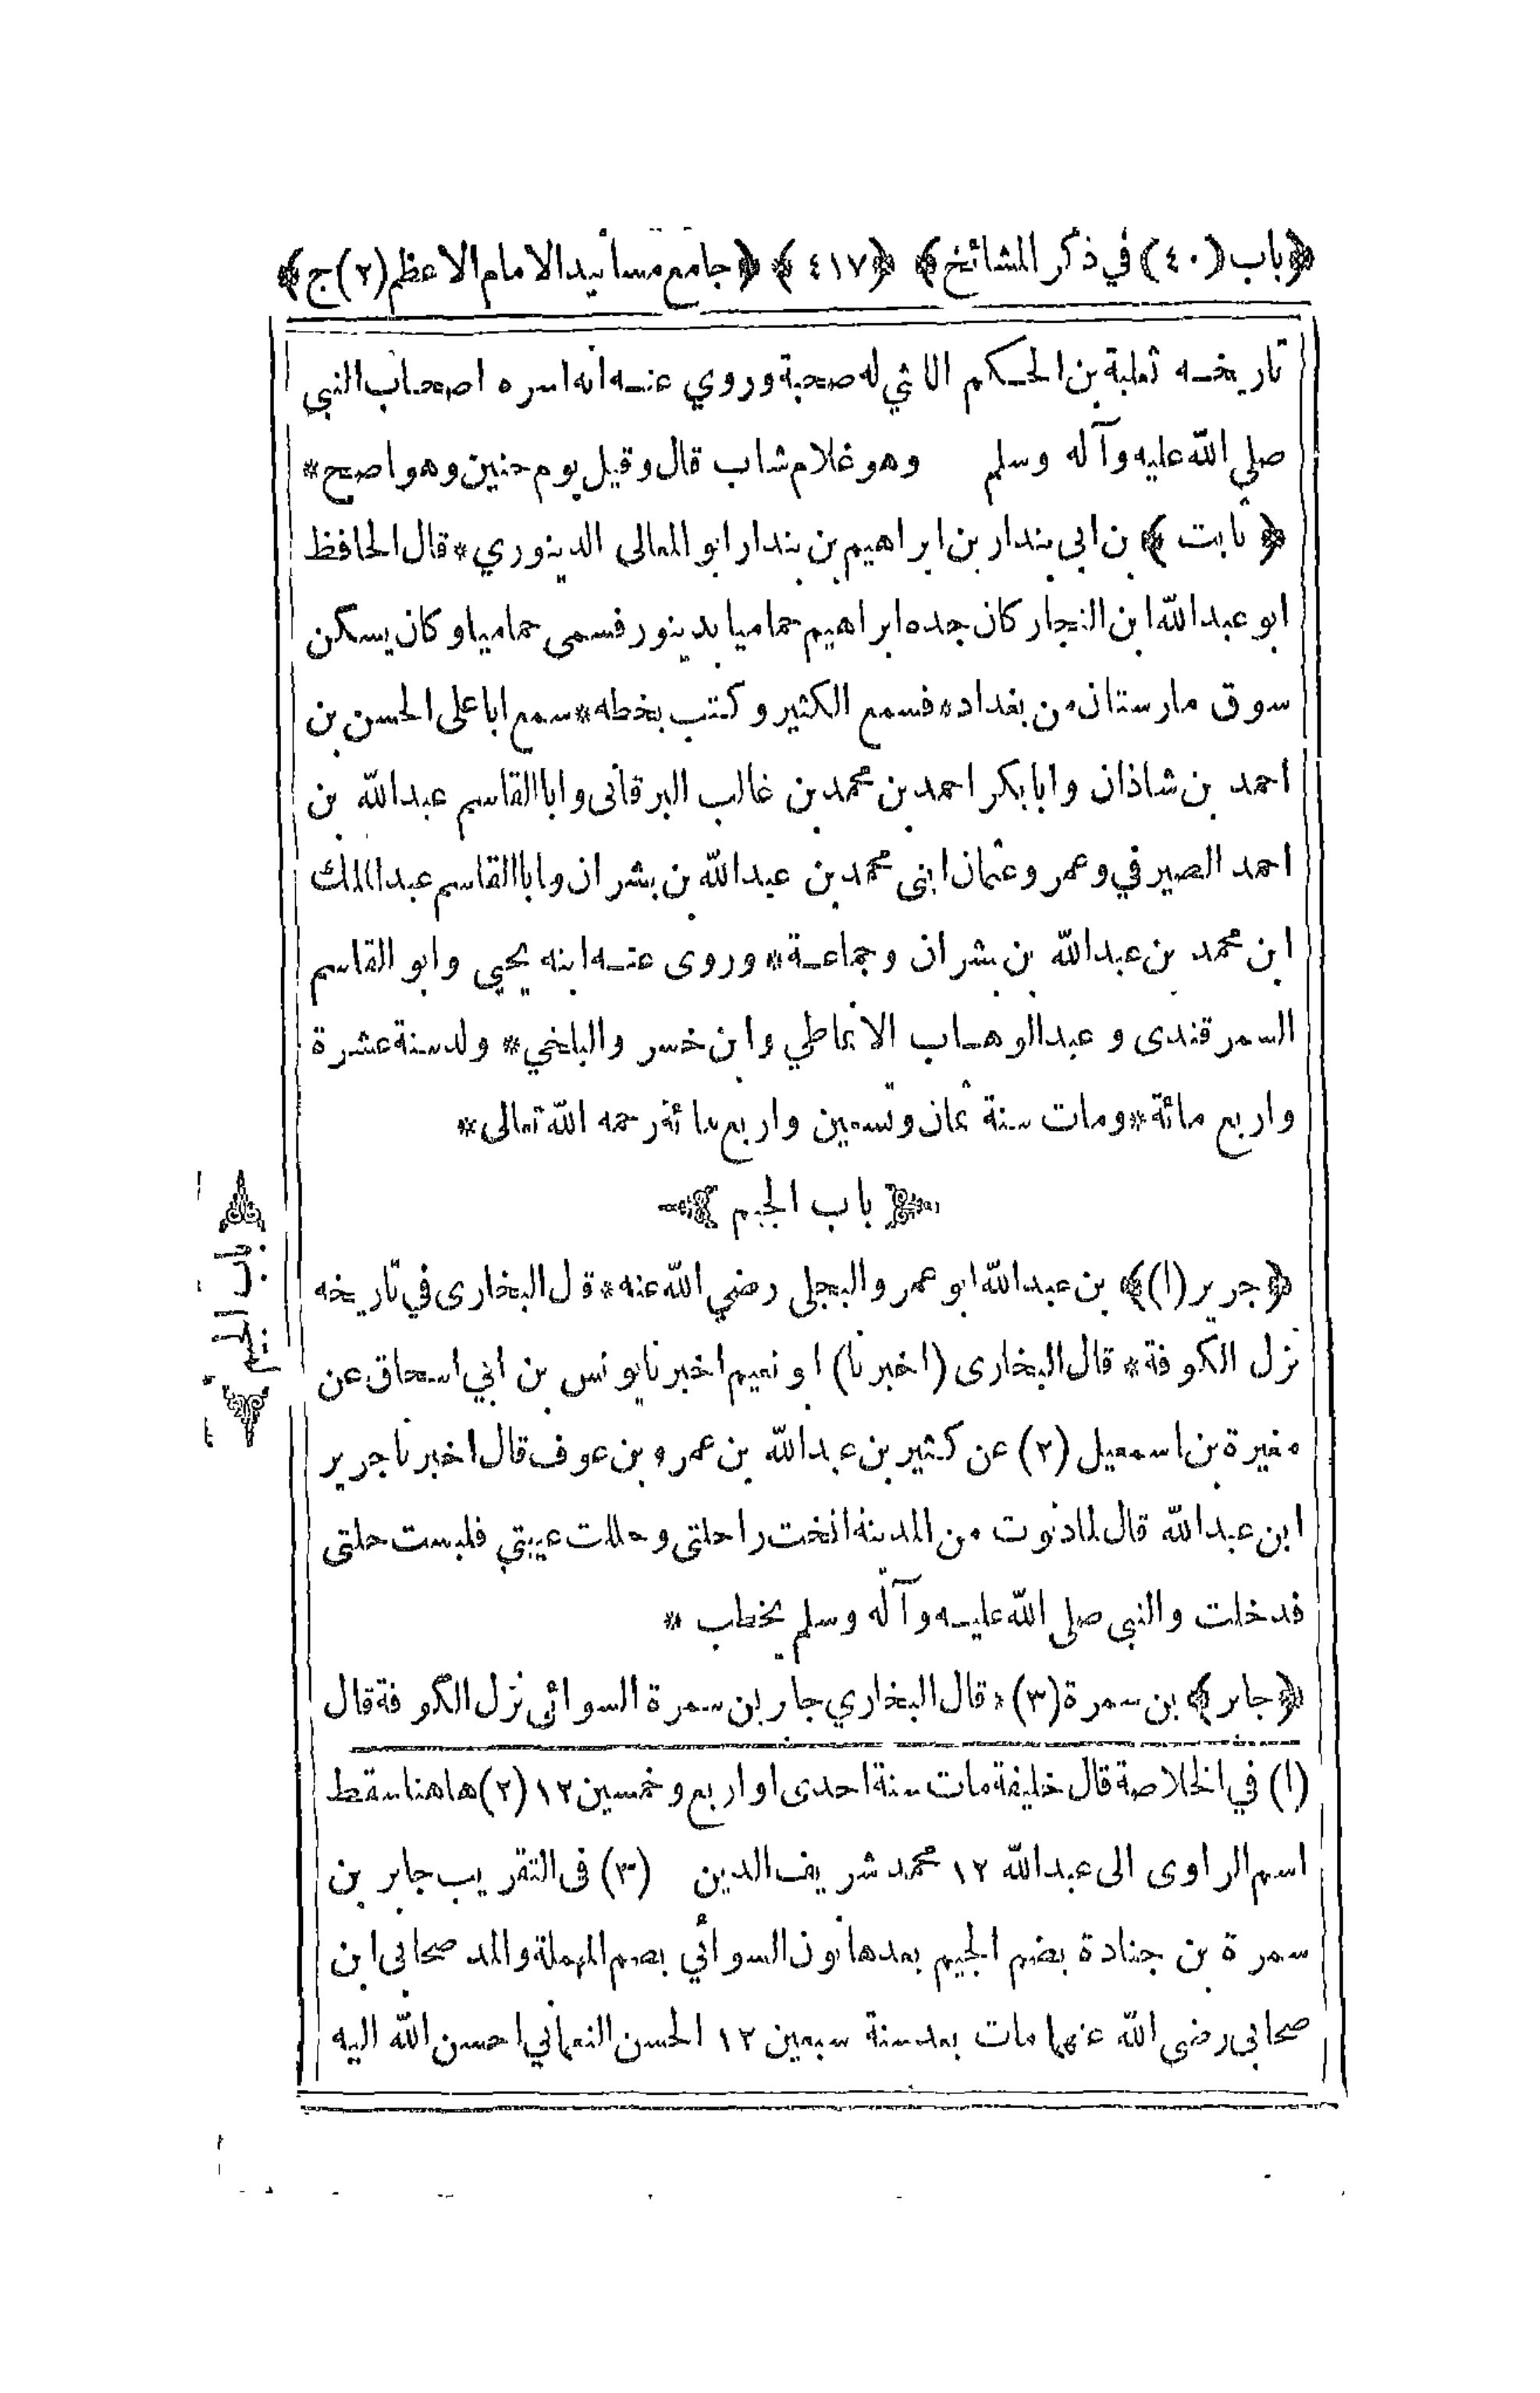 ﴿باب (٤٠) في ذكر المشائخ﴾ ﴿٤١٧﴾ ﴿جامع مسانيد الامام الاعظم (٢) ج﴾
تاريخه ثعلبة بن الحكم الاثي له صحبة وروي عنه انه اسره اصحاب النبي
صلى الله عليه وآله وسلم وهو غلام شاب قال وقيل يوم حنين وهو اصح*
﴿ثابت﴾ بن ابي بندار بن ابراهيم بن بندار ابو المعالى الدينوري* قال الحافظ
ابو عبدالله ابن النجار كان جده ابراهيم حماميا بدينور فسمى حماميا وكان يسكن
سوق مارستان من بغداد* فسمع الكثير وكتب بخطه* سمع ابا على الحسن بن
احمد بن شاذان وابا بكر احمد بن محمد بن غالب البرقانى وابا القاسم عبدالله بن
احمد الصيرفي وعمر وعثمان ابنى محمد بن عبدالله بن بشران وابا القاسم عبدالملك
ابن محمد بن عبدالله بن بشران وجماعة* وروى عنه ابنه يحيي وابو القاسم
السمرقندى و عبدالوهاب الانماطي وابن خسر والبلخي* ولد سنة عشرة
واربع مائة* ومات سنة ثمان وتسعين واربع مائة رحمه الله تعالى*
باب الجيم
باب الجيم
﴿جرير (١)﴾ بن عبدالله ابو عمر والبجلى رضي الله عنه* قل البخارى في تاريخه
نزل الكوفة* قال البخارى (اخبرنا) ابو نعيم اخبرنا يونس بن ابي اسحاق عن
مغيرة بن اسمعيل (٢) عن كثير بن عبدالله بن عمرو بن عوف قال اخبرنا جرير
ابن عبدالله قال لما دنوت من المدينة انخت راحلتى وحللت عيبتي فلبست حلتى
فدخلت والنبي صلى الله عليه وآله وسلم يخطب *
﴿جابر﴾ بن سمرة (٣)* قال البخاري جابر بن سمرة السوائى نزل الكوفة قال
(١) في الخلاصة قال خليفة مات سنة احدى او اربع وخمسين ١٢ (٢) هاهنا سقط
اسم الراوى الى عبدالله ١٢ محمد شريف الدين (٣) فى التقريب جابر بن
سمرة بن جنادة بضم الجيم بعدها نون السوائي بضم المهملة والمد صحابى ابن
صحابى رضى الله عنهما مات بعد سنة سبعين ١٢ الحسن النعماني احسن الله اليه